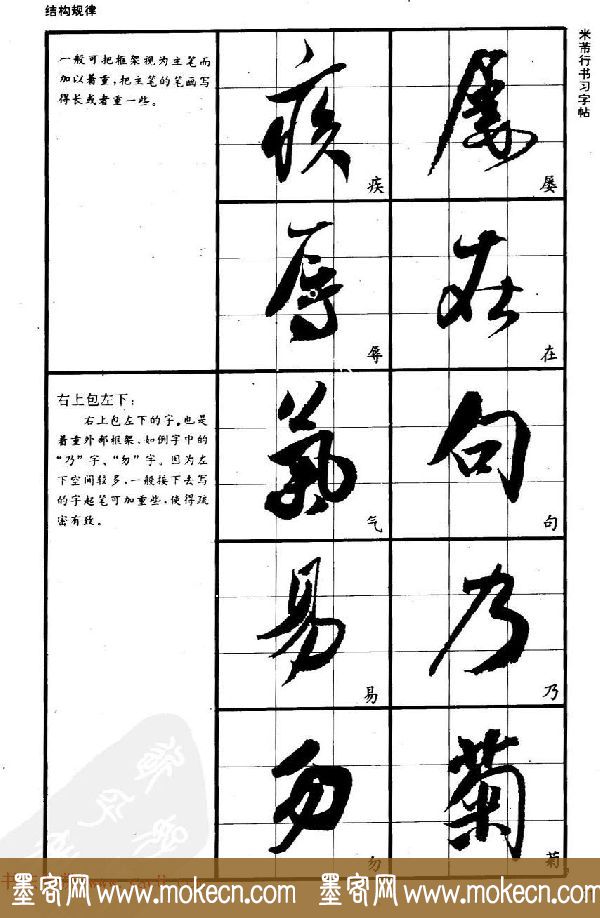 结构规律
米芾行书习字帖
一般可把框架视为主笔而
加以着重，把主笔的笔画写
得长或者重一些。
屡
疾
在
辱
右上包左下：
右上包左下的字，也是
着重外部框架、如例字中的
“乃”字、“勿”字。因为左
下空间较多，一般接下去写
的字起笔可加重些，使得疏
密有致。
句
气
乃
易
菊
勿
墨客网 www.mokecn.com 墨客网 www.mokecn.com